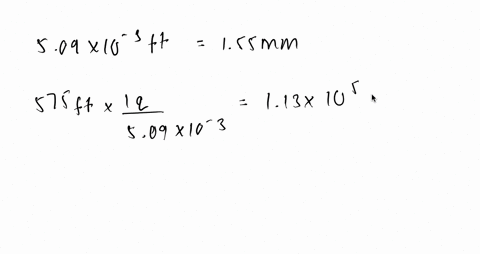 5.09 × 10⁻³ ft = 1.55 mm
575 ft × 1q / 5.09 × 10⁻³ = 1.13 × 10⁵